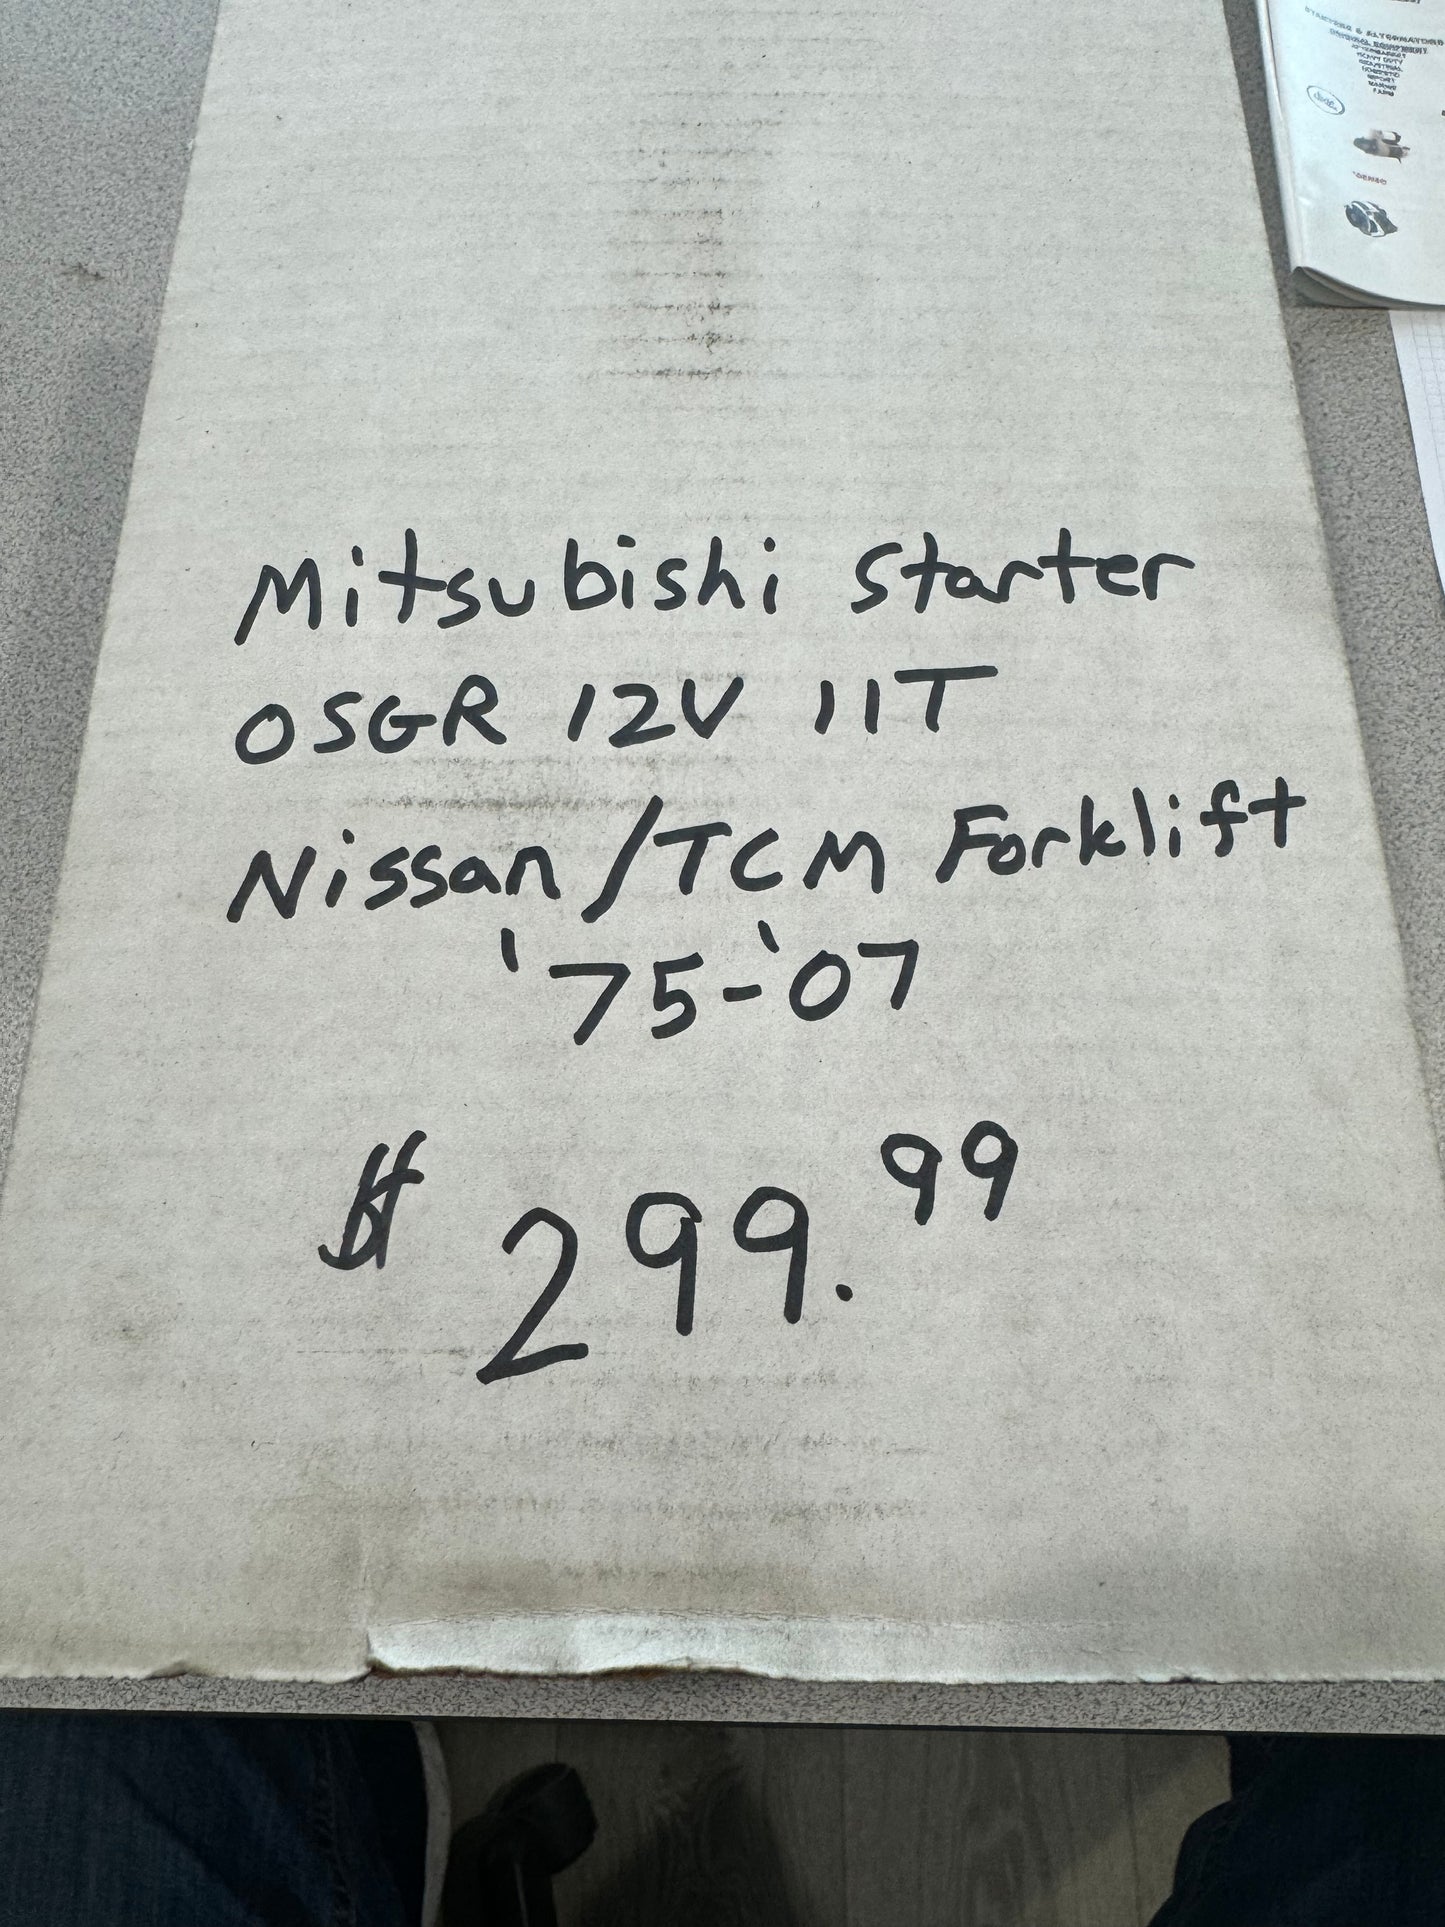 Mitsubishi Starter
OSGR 12V 11T
Nissan/TCM Forklift
'75-'07
$299.99
STARTERS & ALTERNATORS
HEAVY DUTY